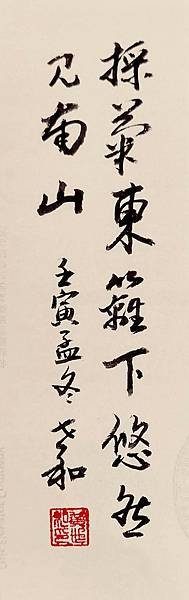 採菊東籬下悠然
見南山
壬寅孟冬 世和